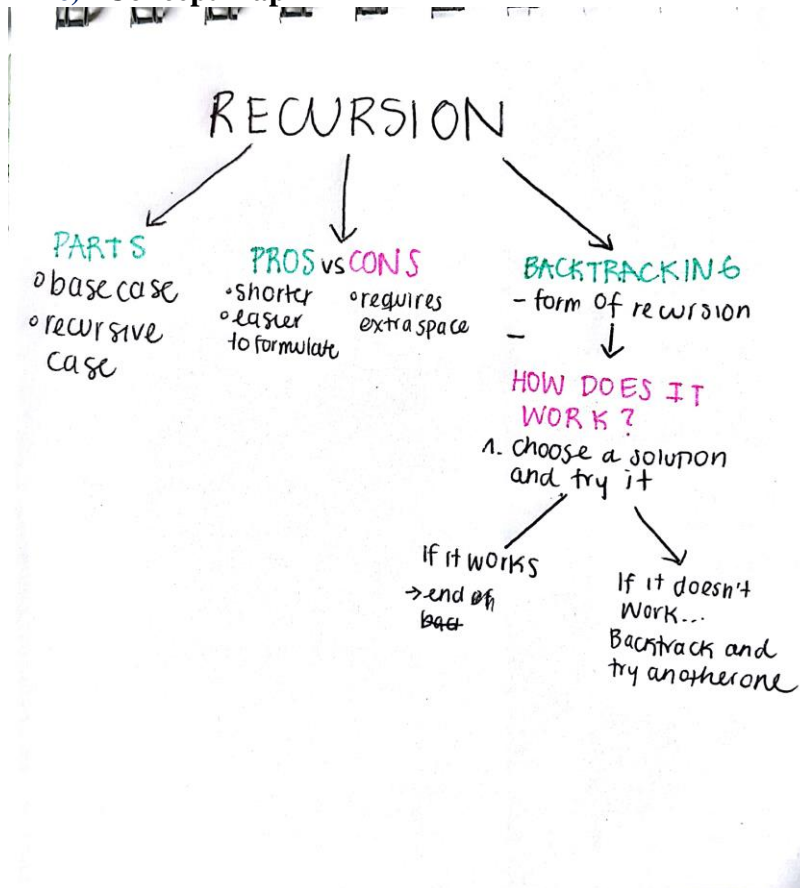 RECURSION
PARTS
base case
recursive
case
PROS vs CONS
• shorter
easier
to formulate
requires
extra space
BACKTRACKING
- form of recursion
-
HOW DOES IT
WORK?
1. choose a solution
and try it
If it works
→ end
If it doesn't
work...
Backtrack and
try another one